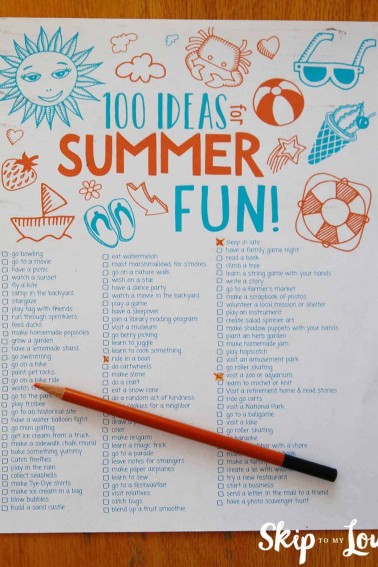 100 IDEAS for
SUMMER
FUN!
go bowling
go to a movie
have a picnic
watch a sunset
fly a kite
camp in the backyard
stargaze
play tag with friends
run through sprinklers
feed ducks
make homemade popsicles
grow a garden
have a lemonade stand
go swimming
go on a hike
paint pet rocks
go on a bike ride
go to the
play frisbee
go to an historical site
have a water balloon fight
go mini golfing
get ice cream from a truck
make a sidewalk chalk mural
bake something yummy
catch fireflies
play in the rain
collect seashells
make Tye-Dye shirts
make ice cream in a bag
blow bubbles
build a sand castle
eat watermelon
roast marshmallows for s'mores
go on a nature walk
wish on a star
have a dance party
watch a movie in the backyard
play a game
have a sleepover
join a library reading program
visit a museum
go berry picking
learn to juggle
learn to cook something
ride in a boat
do cartwheels
make slime
do a craft
eat a snow cone
do a random act of kindness
for a neighbor
color
make origami
learn a magic trick
go to a parade
leave notes for strangers
make paper airplanes
learn to sew
go to a festival/fair
visit relatives
catch bugs
blend up a fruit smoothie
sleep in late
have a family game night
read a book
climb a tree
learn a string game with your hands
write a story
go to a farmer's market
make a scrapbook of photos
volunteer a local mission or shelter
play an instrument
create salad spinner art
make shadow puppets with your hands
plant an herb garden
make homemade jam
play hopscotch
visit an amusement park
go roller skating
visit a zoo or aquarium
learn to crochet or knit
visit a retirement home & read stories
ride go carts
visit a National Park
go to a ballgame
visit a lake
go roller skating
karaoke
with a chore
make a
create a
try a new restaurant
start a business
send a letter in the mail to a friend
have a photo scavenger hunt
Skip TO MY Lou